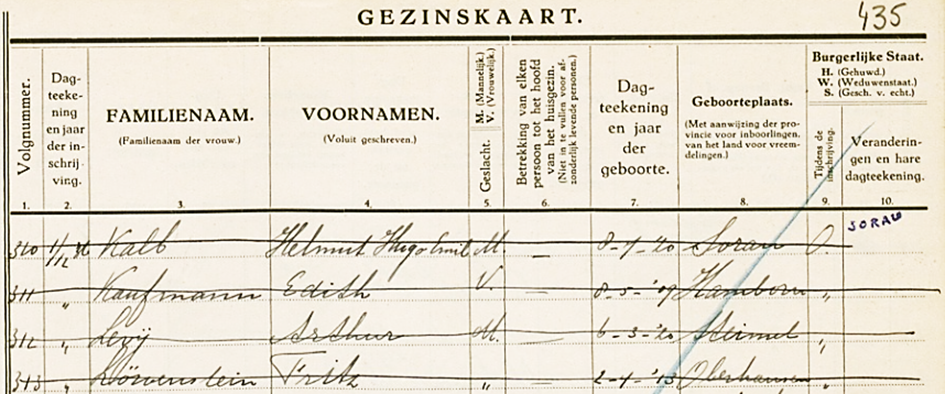 GEZINSKAART. 435
Volgnummer. Dag-teeke-ning en jaar der in-schrij-ving. FAMILIENAAM. (Familienaam der vrouw.) VOORNAMEN. (Voluit geschreven.) Geslacht. M. (Mannelijk.) V. (Vrouwelijk.) Betrekking van elken persoon tot het hoofd van het huisgezin. (Niet in te vullen voor af-zonderlijk levende personen.) Dag-teekening en jaar der geboorte. Geboorteplaats. (Met aanwijzing der pro-vincie voor inboorlingen. van het land voor vreem-delingen.) Burgerlijke Staat. H. (Gehuwd.) W. (Weduwenstaat.) S. (Gesch. v. echt.) Tijdens de inschrijving. Veranderin-gen en hare dagteekening.
1. 2. 3. 4. 5. 6. 7. 8. 9. 10.
SORAU
310 Kalb Helmut Hugo Emil M. — 8-7-'20 Sorau O.
311 " Kaufmann Edith V. — 8-5-'09 Hamborn "
312 " Levÿ Arthur M. 6-3-'20 "
313 " Löwenstein Fritz " — 2-4-'13 Oberhausen "